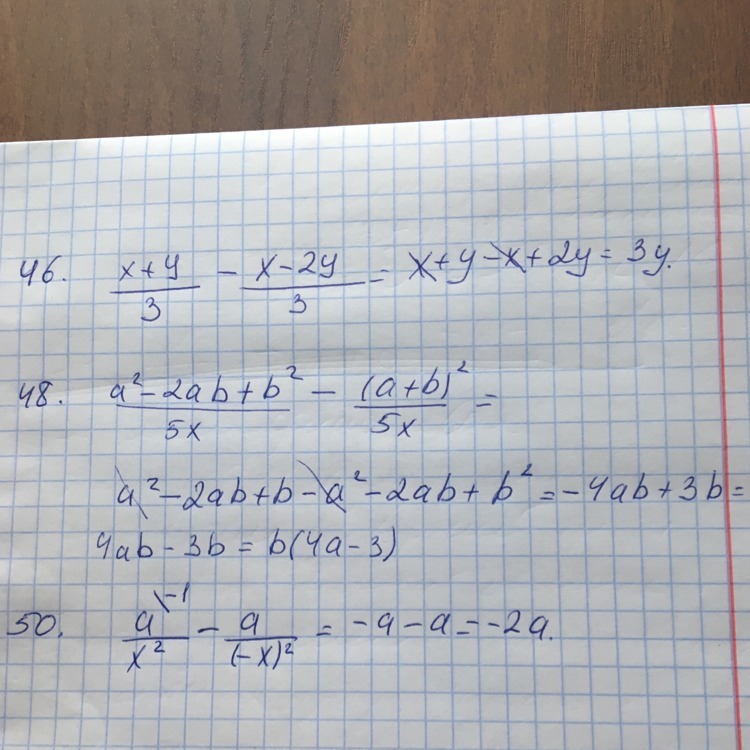 46. (x+y)/3 - (x-2y)/3 = x+y-x+2y = 3y.
48. (a²-2ab+b²)/5x - (a+b)²/5x =
a²-2ab+b-a²-2ab+b² = -4ab+3b =
4ab-3b = b(4a-3)
50. a\-1/x² - a/(-x)² = -a-a = -2a.